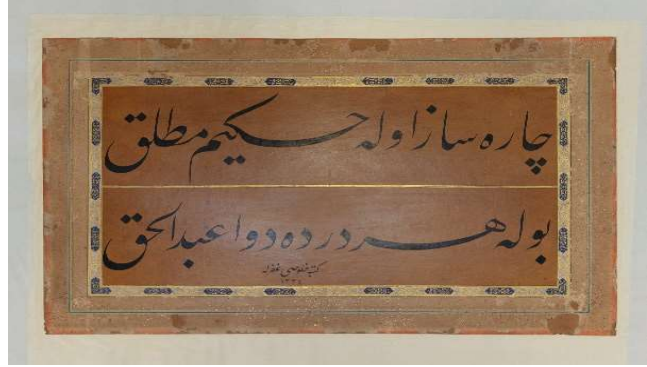 چاره ساز اوله حکیم مطلق
بوله هر درده دوا عبدالحق
کتبه خلوصی غفر له